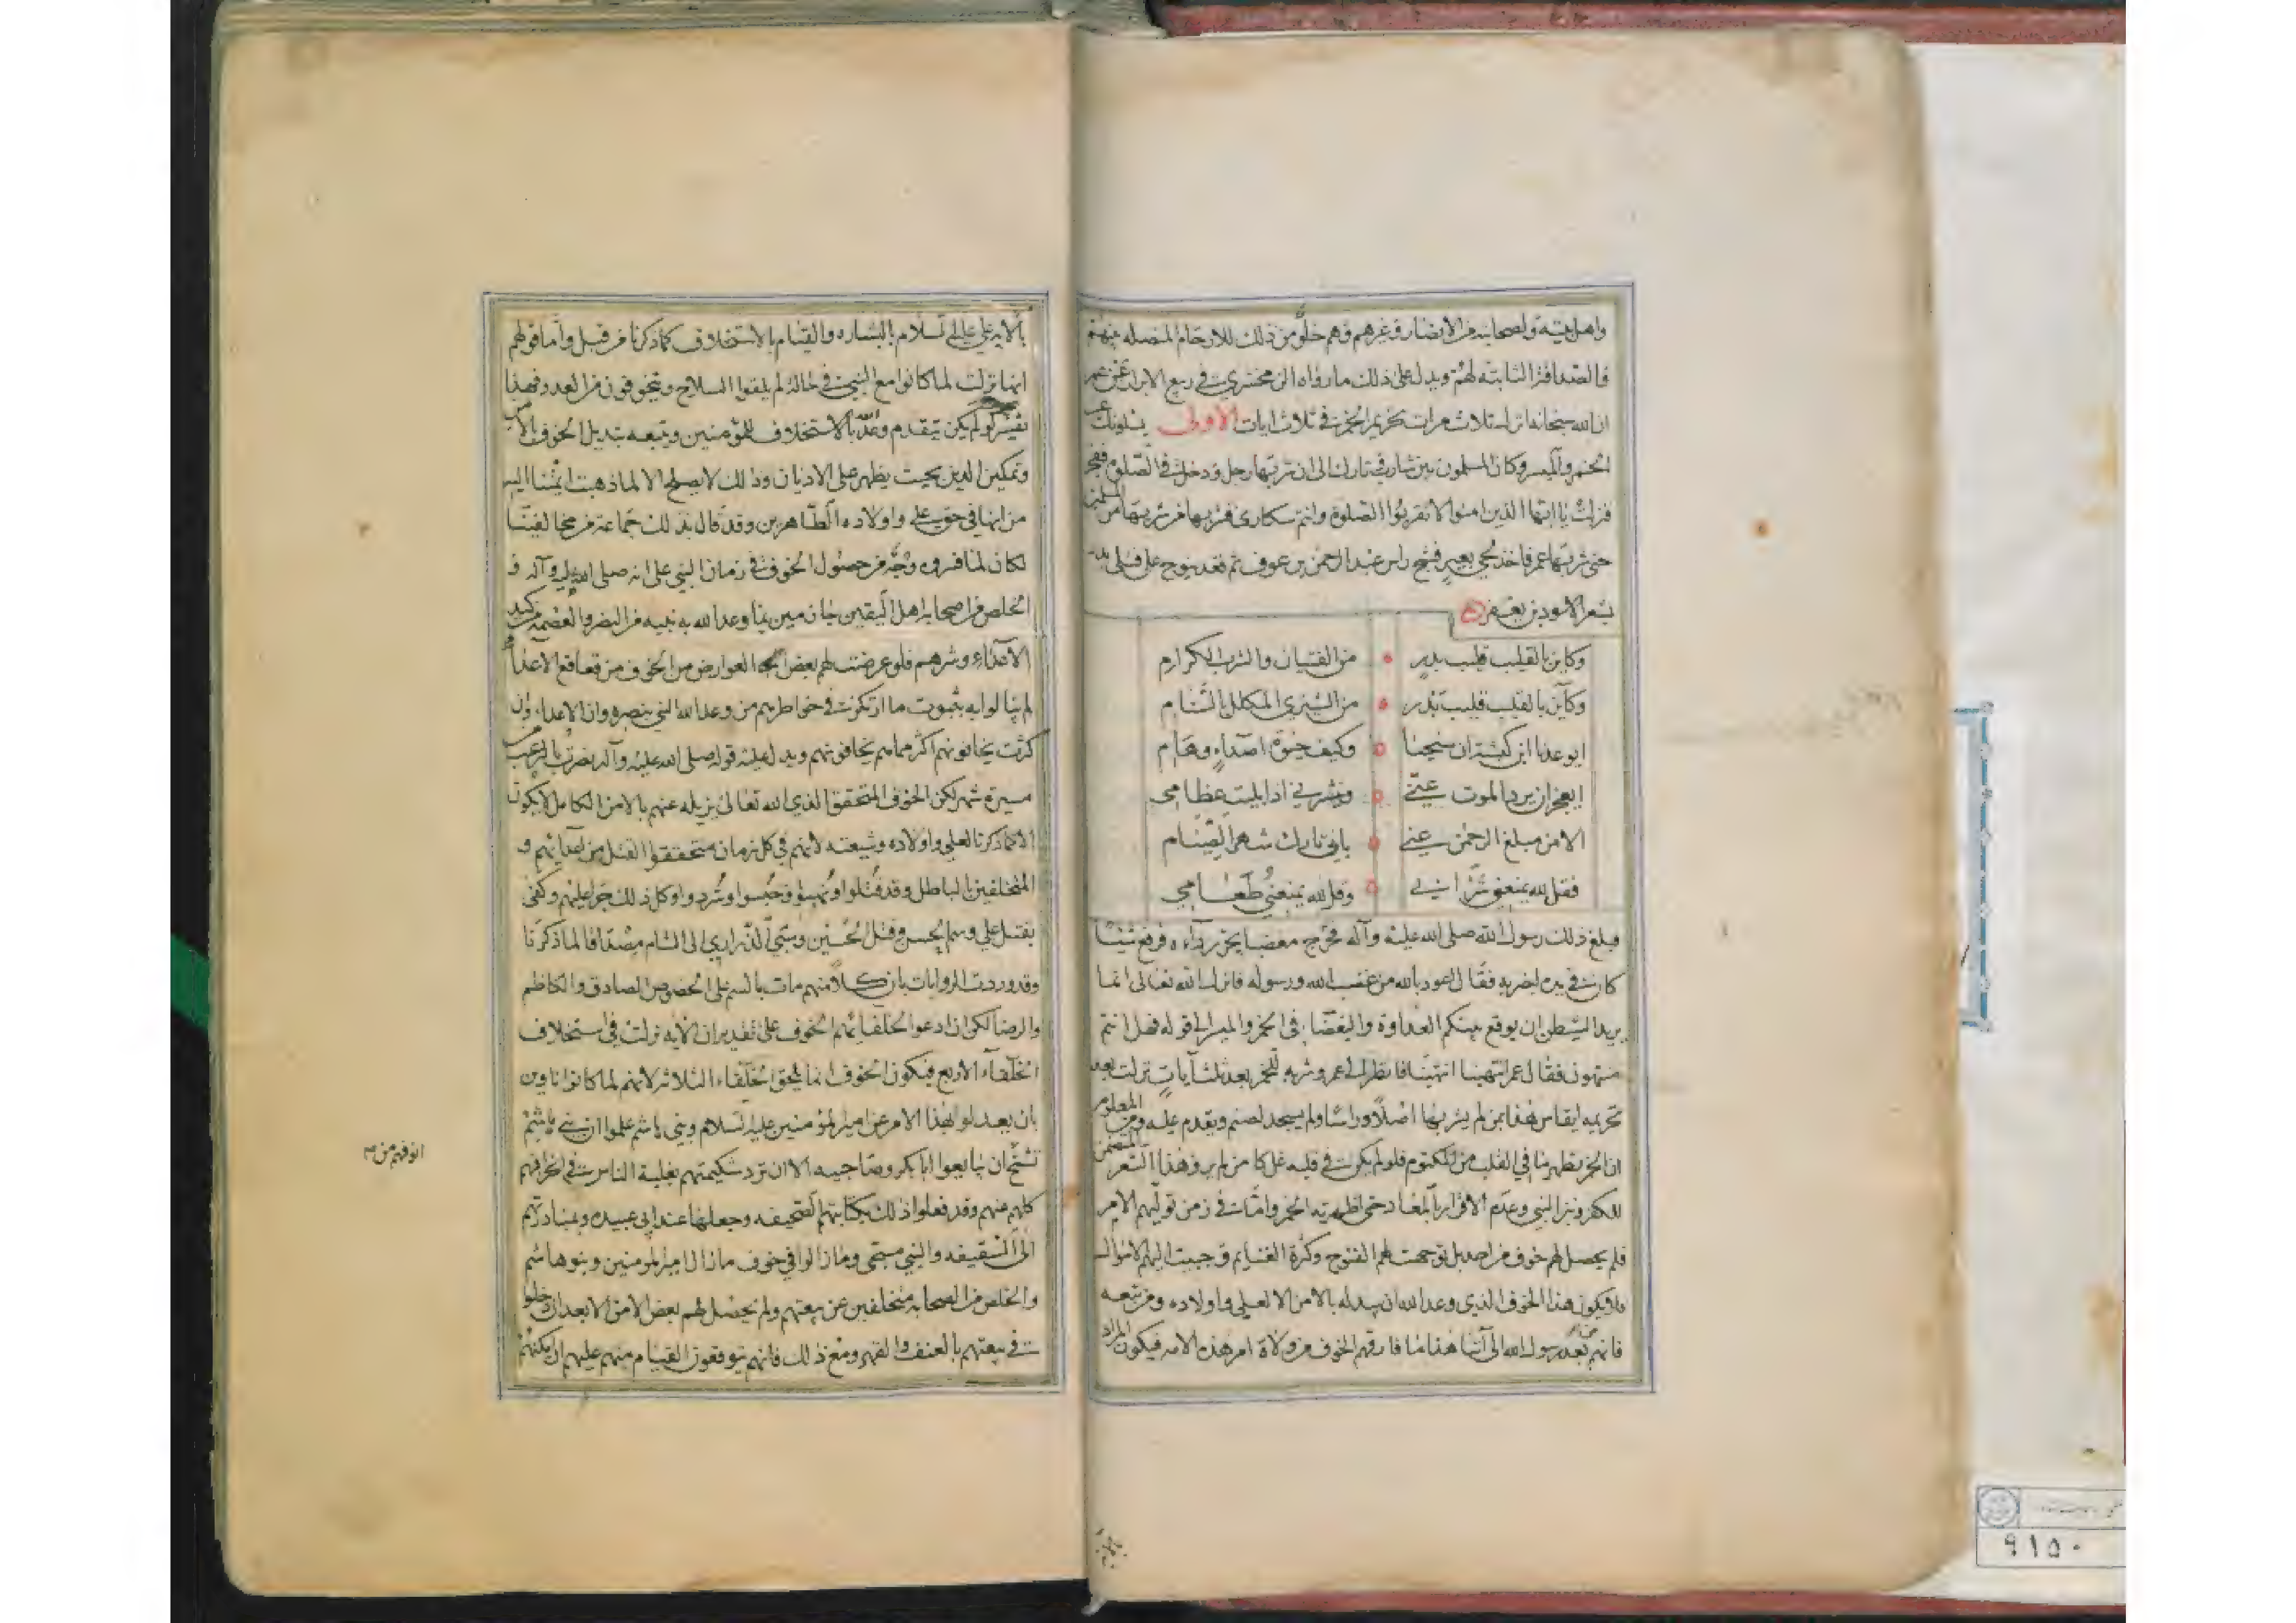 واهل بيته ولصحابته من الانصار وغيرهم وهم خلو من ذلك للارحام المتصله بينهم
فالصداقة الثابته لهم ويدل على ذلك ما رواه الزمخشري في ربيع الابرار عن عمر
ان الله سبحانه انزل ثلاث مرات تحريم الخمر في ثلاث ايات الاولى يسئلونك عن
الخمر والميسر وكان المسلمون بين شارب وتارك الى ان شربها رجل ودخل في الصلوة فهجر
فنزلت يا ايها الذين امنوا لا تقربوا الصلوة وانتم سكارى فشربها من شربها من المسلمين
حتى شربها عمر فاخذ لحي بعير فشج راس عبد الرحمن بن عوف ثم قعد ينوح على قتلى بدر
بشعر الاسود بن يعفر
وكاين بالقليب قليب بدر من الفتيان والشرب الكرام
وكاين بالقليب قليب بدر من الشيزى المكلل بالسنام
ايوعدنا ابن كبشة ان سنحيا وكيف حيوة اصداء وهام
ايعجز ان يرد الموت عني وينشرني اذا بليت عظامي
الا من مبلغ الرحمن عني باني تارك شهر الصيام
فقل لله يمنعني شرابي وقل لله يمنعني طعامي
فبلغ ذلك رسول الله صلى الله عليه وآله فخرج مغضبا يجر رداءه فرفع شيئا
كان في يده ليضربه فقال اعوذ بالله من غضب الله ورسوله فانزل الله تعالى انما
يريد الشيطن ان يوقع بينكم العداوة والبغضاء في الخمر والميسر الى قوله فهل انتم
منتهون فقال عمر انتهينا انتهينا فانظر الى عمر وشربه للخمر بعد ثلث آيات نزلت بعد
تحريمه ايقاس هذا بمن لم يشربها اصلا وراسا ولم يسجد لصنم ويقدم عليه ومن المعلوم
ان الخمر يظهر ما في القلب من المكتوم فلو لم يكن في قلبه غل كامن لم يرو هذا الشعر المتضمن
للكفر ونبز النبي وعدم الاقرار بالمعاد حتى اظهرته الخمر واما في زمن توليهم الامر
فلم يحصل لهم خوف من احد بل توجهت لهم الفتوح وكثرة الغنايم وجبيت اليهم الاموال
فلا يكون هذا الخوف الذي وعد الله ان يبدله بالامن الا لعلي واولاده ومن تبعه
فانهم بعد رسول الله الى آننا هذا ما فارقهم الخوف من ولاة امر هذه الامه فيكون المراد
بالايه علي عليه السلام بالبشاره والقيام بالاستخلاف كما ذكرنا من قبل واما قولهم
انها نزلت لما كانوا مع النبي في حالة لم يلقوا السلاح ويتخوفون من العدو فهذا
لم يكن يتقدم وعد بالاستخلاف للمؤمنين ويتبعه تبديل الخوف بالامن
وتمكين الدين بحيث يظهر على الاديان وذلك لا يصلح الا لما ذهبت ائمتنا اليه
من انها في حق علي واولاده الطاهرين وقد قال بذلك جماعة من مخالفينا
لكان لما فسروه وجه من حصول الخوف في زمان النبي على انه صلى الله عليه وآله و
الخلص من اصحابه اهل اليقين جازمين بما وعد الله به نبيه من النصر والعصمة من كيد
الاعداء وشرهم فلو عرضت لهم بعض العوارض من الخوف من قعاقع الاعداء
لم يبالوا به بثبوت ما ارتكزت في خواطرهم من وعد الله النبي بنصره وان الاعداء وان
كثرت يخافونهم اكثر مما هم يخافونهم ويدل عليه قوله صلى الله عليه وآله نصرت بالرعب من
مسيرة شهر لكن الخوف المتحقق الذي الله تعالى يزيله عنهم بالامن الكامل لا يكون
الا كما ذكرنا لعلي واولاده وشيعته لانهم في كل زمان متحققوا القتل من اعدائهم و
المتخلفين بالباطل وقد قتلوا ونهبوا وحبسوا وشردوا وكل ذلك جرا عليهم وكفى
بقتل علي وسم الحسن وقتل الحسين وسبي الذراري الى الشام مصداقا لما ذكرنا
وقد وردت الروايات بان كلا منهم مات بالسم على الخصوص الصادق والكاظم
والرضا لكن اذا ادعوا لخلفائهم الخوف على تقدير ان الايه نزلت في استخلاف
الخلفاء الاربع فيكون الخوف انما يلحق الخلفاء الثلاثه لانهم لما كانوا ناوين
بان يعدلوا بهذا الامر عن امير المؤمنين عليه السلام وبني هاشم علموا ان بني هاشم
تشح ان يبايعوا ابا بكر وصاحبيه الا ان ترد شكيمتهم بغلبة الناس في انحرافهم
كلهم عنهم وقد فعلوا ذلك بكتابتهم الصحيفه وجعلها عند ابي عبيده ومبادرتهم
الى السقيفه والنبي مسجى وما زالوا في خوف ماذا امير المؤمنين وبنو هاشم
والخلص من الصحابه متخلفين عن بيعتهم ولم يحصل لهم بعض الامن الا بعد ان دخلوا
في بيعتهم بالعنف والقهر ومع ذلك فانهم يتوقعون القيام منهم عليهم ان يمكنهم
٩١٥٠